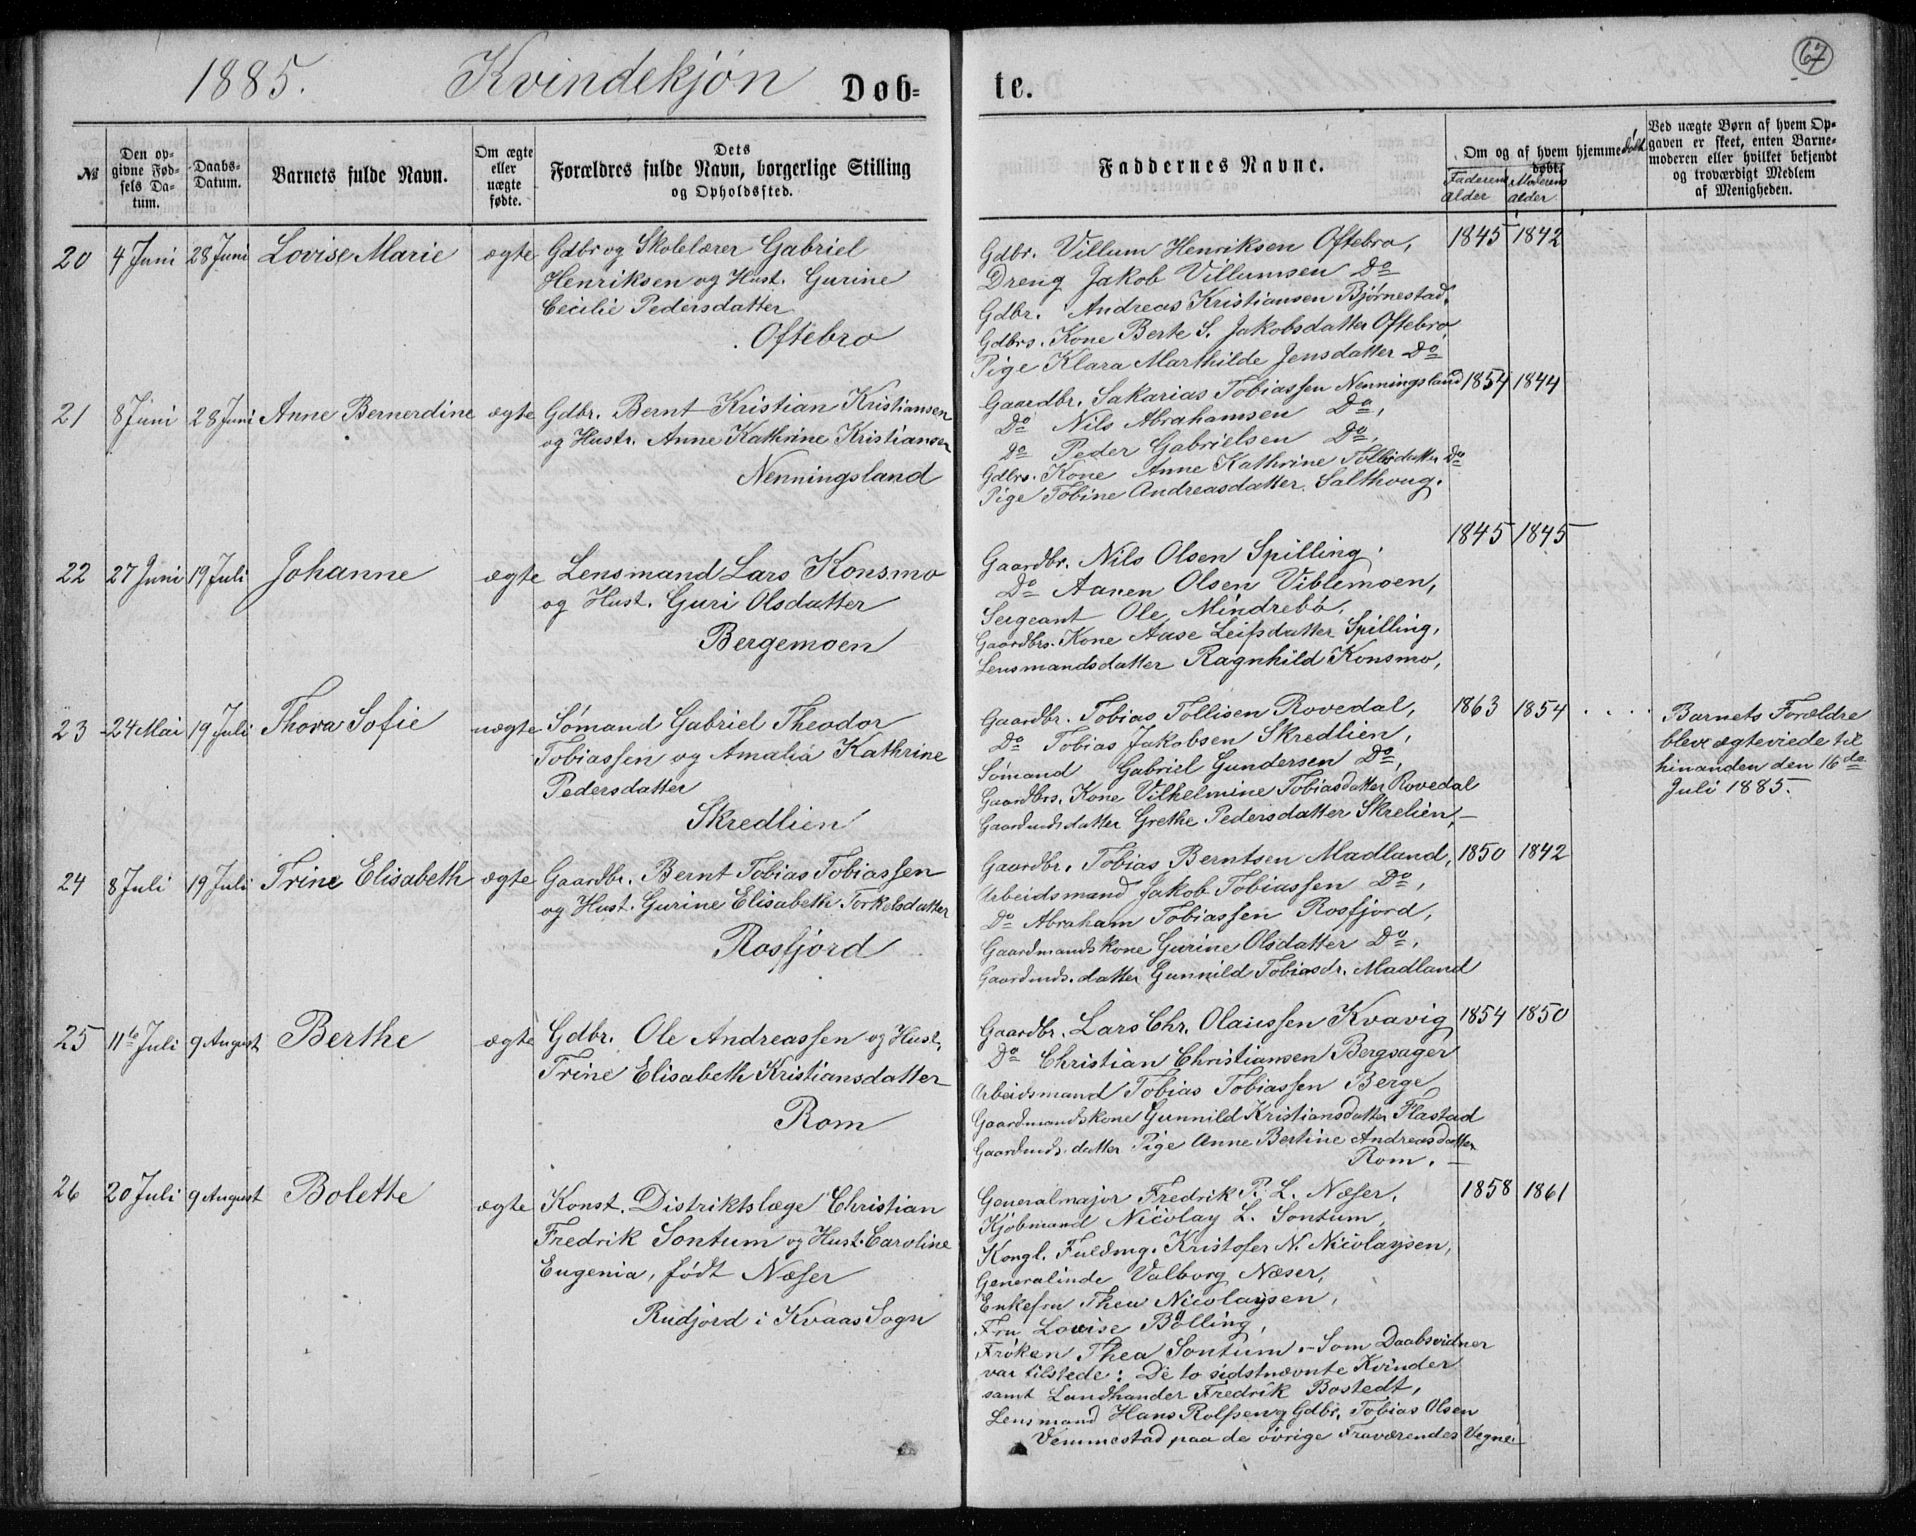 67
1885. Kvindekjøn Døb=te.
№
Den opgivne Fødsels Datum.
Daabs-Datum.
Barnets fulde Navn.
Om ægte eller uægte fødte.
Dets Forældres fulde Navn, borgerlige Stilling og Opholdssted.
Faddernes Navne.
Om og af hvem hjemmedøbt
Faderens alder
Moderens alder
Ved uægte Børn af hvem Opgaven er skeet, enten Barnemoderen eller hvilket bekjendt og troværdigt Medlem af Menigheden.
20 4 Juni 28 Juni Lovise Marie ægte Gdbr og Skolelærer Gabriel
Henriksen og Hust. Gurine
Cecilie Pedersdatter
Oftebro
Gdbr. Villum Henriksen Oftebro, 1845 1842
Dreng Jakob Villumsen Do
Gdbr. Andreas Kristiansen Bjørnestad.
Gdbrs. Kone Berte S. Jakobsdatter Oftebro
Pige Klara Marthilde Jensdatter Do
21 8 Juni 28 Juni Anne Bernerdine ægte Gdbr. Bernt Kristian Kristiansen
og Hustr. Anne Kathrine Kristiansen
Nenningsland
Gaardbr. Sakarias Tobiassen Nenningsland 1854 1844
Do Nils Abrahamsen Do,
Do Peder Gabrielsen Do,
Gdbrs. Kone Anne Kathrine Tollisdatter Do
Pige Tobine Andreasdatter Salthoug.
22 27 Juni 19 Juli Johanne ægte Lensmand Lars Konsmo
og Hust. Guri Olsdatter
Bergemoen
1845 1845
Gaardbr. Nils Olsen Spilling.
Do Aanen Olsen Viblemoen,
Sergeant Ole Mindrebø,
Gaardbrs. Kone Aase Leifsdatter Spilling,
Lensmandsdatter Ragnhild Konsmo,
23 24 Mai 19 Juli Thora Sofie uægte Sømand Gabriel Theodor
Tobiassen og Amalia Kathrine
Pedersdatter
Skredlien
Gaardbr. Tobias Tollisen Rovedal, 1863 1854
Do Tobias Jakobsen Skredlien,
Sømand Gabriel Gundersen Do,
Gaardbrs. Kone Vilhelmine Tobiasdatter Rovedal
Gaardmdsdatter Grethe Pedersdatter Skrelien,
Barnets Forældre
bleve ægteviede til
hinanden den 16de
Juli 1885.
24 8 Juli 19 Juli Trine Elisabeth ægte Gaardbr. Bernt Tobias Tobiassen
og Hust. Gurine Elisabeth Torkelsdatter
Rosfjord
Gaardbr. Tobias Berntsen Madland, 1850 1842
Arbeidsmand Jakob Tobiassen Do,
Do Abraham Tobiassen Rosfjord,
Gaardmandskone Gurine Olsdatter Do,
Gaardmds. datter Gunnild Tobiasdr. Madland
25 11te Juli 9 August Berthe ægte Gdbr. Ole Andreassen og Hust.
Trine Elisabeth Kristiansdatter
Rom
Gaardbr. Lars Chr. Olaussen Kvavig 1854 1850
Do Christian Christiansen Bergsager
Arbeidsmand Tobias Tobiassen Berge
Gaardmandskone Gunnild Kristiansdatter Flastad
Gaardmds. datter Pige Anne Bertine Andreasdatter
Rom.
26 20 Juli 9 August Bolette ægte Konst. Distriktslæge Christian
Fredrik Sontum og Hust. Caroline
Eugenia, født Næser
Rudjord i Kvaas Sogn
Generalmajor Fredrik P. L. Næser, 1858 1861
Kjøbmand Nicolay L. Sontum,
Kongl. Fuldmg. Kristofer N. Nicolaysen,
Generalinde Valborg Næser,
Enkefru Thea Nicolaysen,
Fru Lovise Bölling,
Frøken Thea Sontum. - Som Daabsvidner
var tilstede: De to sidstnævnte Kvinder
samt Landhandler Fredrik Bostedt,
Lensmand Hans Rolfsen og Gdbr. Tobias Olsen
Vemmestad paa de øvrige Fraværendes Vegne